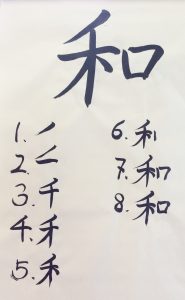 和
1. ノ
2. 𠂉
3. 千
4. 禾
5. 禾
6. 利
7. 和
8. 和